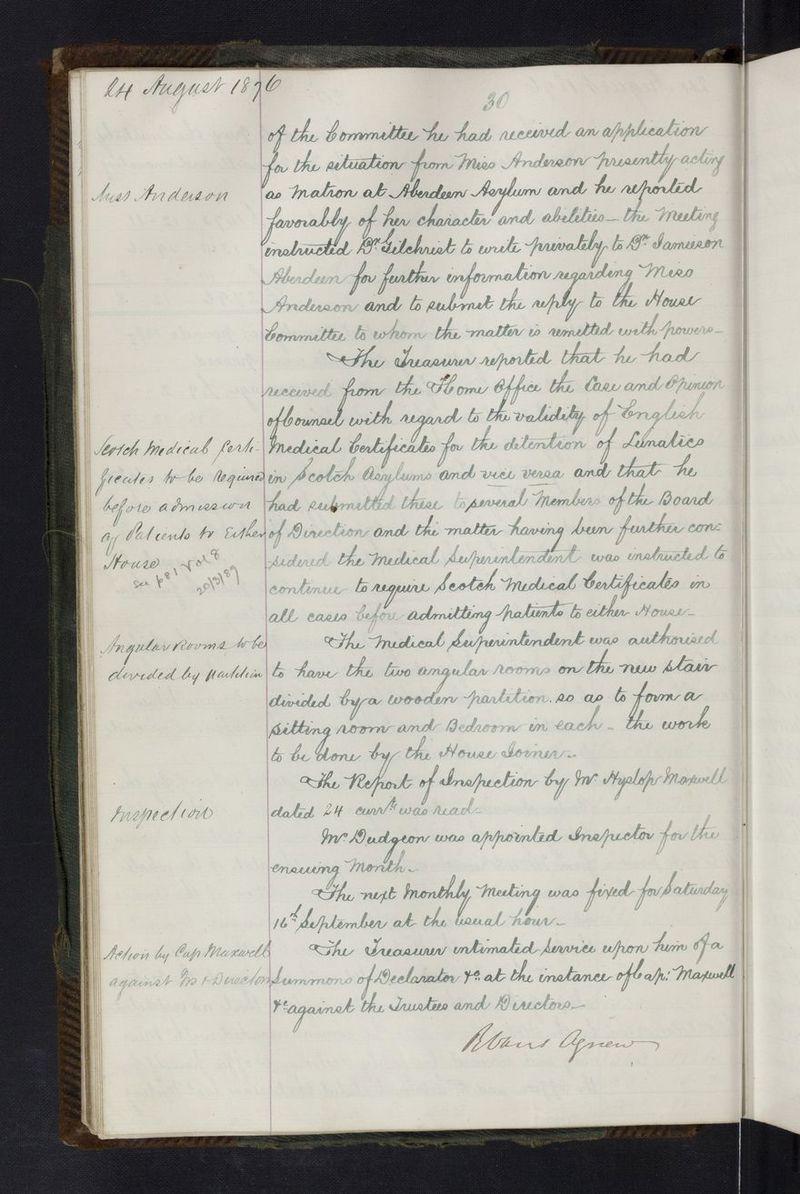 24 August 1876
30
of the Committee he had received an application
for the situation from Miss Anderson presently acting
Miss Anderson
as Matron at Aberdeen Asylum and he reported
favorably of her character and abilities – the Meeting
instructed Dr. Gilchrist to write privately to Dr. Jamieson
Aberdeen for further information regarding Miss
Anderson and to submit the reply to the House
Committee to whom the matter is remitted with powers –
The Treasurer reported that he had
received from the Home Office the Case and Opinion
of Counsel with regard to the validity of English
Scotch Medical Certi-
ficates to be required
before admission
of Patients to Either
House
see p81 Vol 8
20/3/89
Medical Certificates for the detention of Lunatics
in Scotch Asylums and vice versa and that he
had submitted these to several Members of the Board
of Direction and the matter having been further con-
sidered the Medical Superintendent was instructed to
continue to require Scotch Medical Certificates in
all cases before admitting patients to either House –
Angular Rooms to be
divided by partition
The Medical Superintendent was authorised
to have the two angular rooms on the new stair
divided by a wooden partition so as to form a
sitting room and Bedroom in each – the work
to be done by the House Joiner –
Inspection
The Report of Inspection by Mr Hyslop Maxwell
dated 24 currt. was read –
Mr Dudgeon was appointed Inspector for the
ensuing Month –
The next Monthly Meeting was fixed for Saturday
16th September at the usual hour –
Action by Cap Maxwell
against Trs & Directors
The Treasurer intimated service upon him of a
Summons of Declarator &c. at the instance of Cap: Maxwell
&c against the Trustees and Directors –
R Vans Agnew